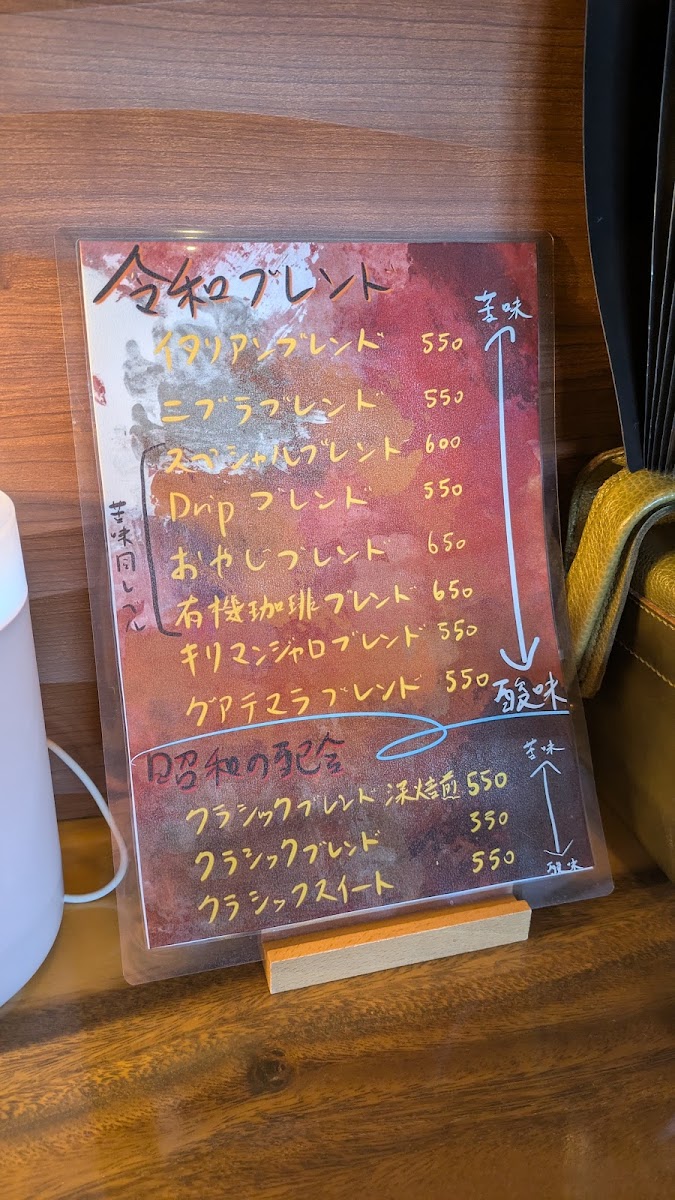 令和ブレンド
苦味
イタリアンブレンド 550
ニブラブレンド 550
スペシャルブレンド 600
Drip ブレンド 550
おやじブレンド 650
有機珈琲ブレンド 650
苦味同レベル
キリマンジャロブレンド 550
グアテマラブレンド 550
酸味
昭和の配合
苦味
クラシックブレンド 深焙煎 550
クラシックブレンド 550
クラシックスイート 550
酸味